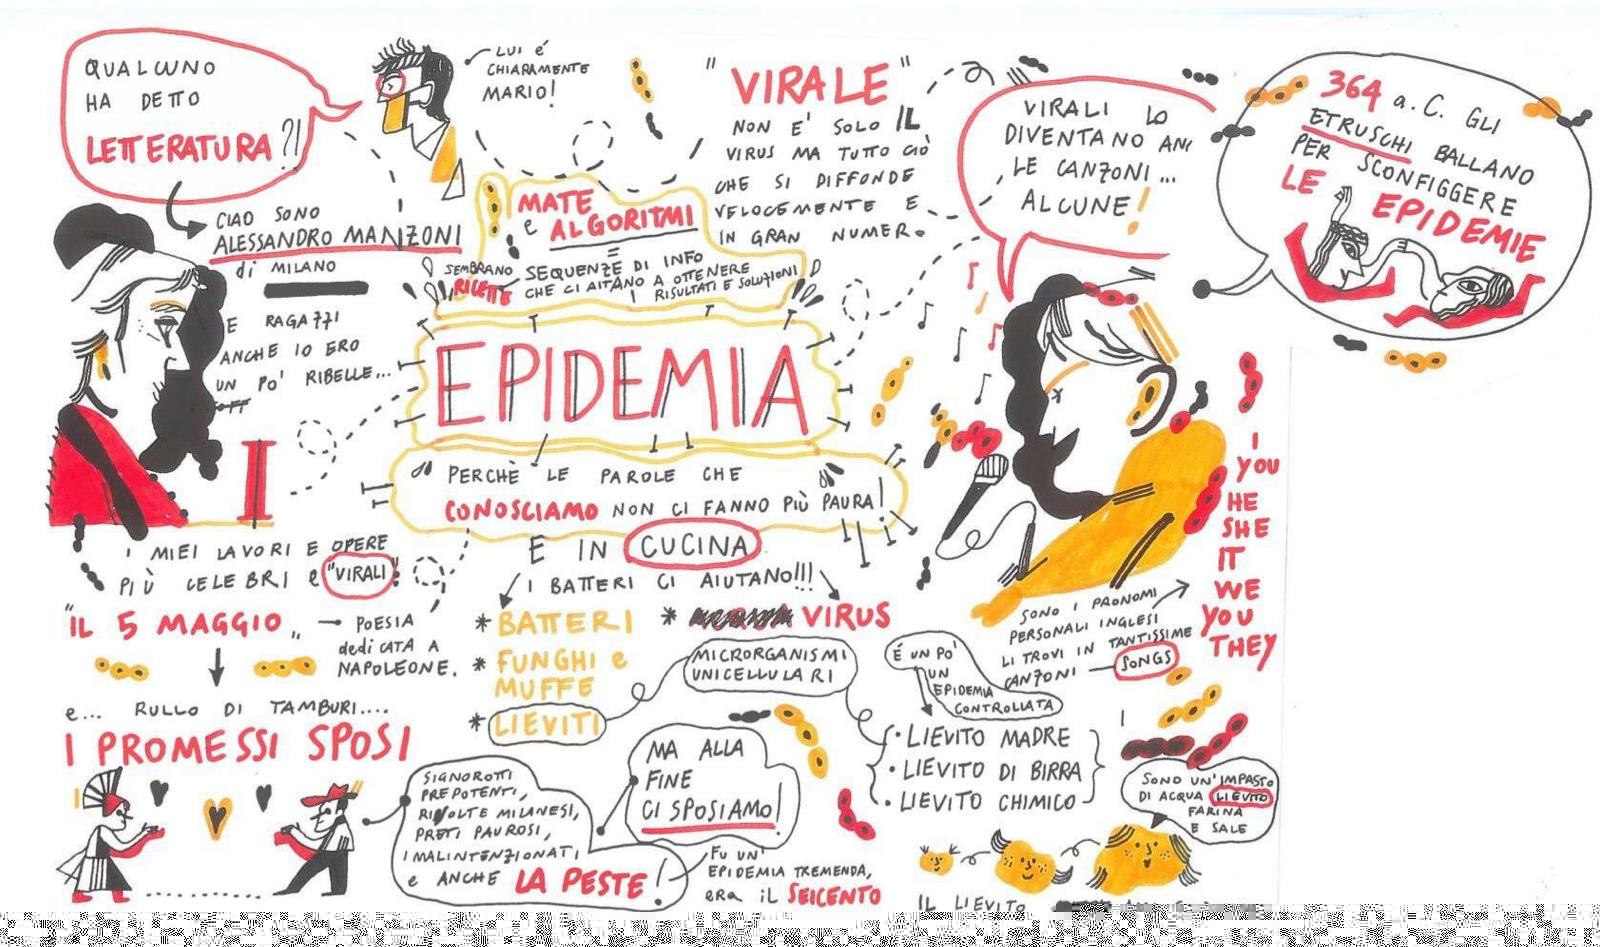 QUALCUNO
HA DETTO
LETTERATURA?!
LUI é
CHIARAMENTE
MARIO!
CIAO SONO
ALESSANDRO MANZONI
di MILANO
E RAGAZZI
ANCHE IO ERO
UN PO' RIBELLE...
I MIEI LAVORI E OPERE
PIÙ CELEBRI e "VIRALI":
"IL 5 MAGGIO"
POESIA
dediCATA A
NAPOLEONE.
e... RULLO DI TAMBURI....
I PROMESSI SPOSI
SIGNOROTTI
PREPOTENTI,
RIVOLTE MILANESI,
PRETI PAUROSI,
MALINTENZIONATI
e ANCHE LA PESTE!
MA ALLA
FINE
CI SPOSIAMO!
FU UN'
EPIDEMIA TREMENDA,
eRA iL SEICENTO
MATE
e ALGORITMI
=
SEMBRANO
RICETTE
SEQUENZE DI INFO
CHE CI AITANO A OTTENERE
RISULTATI E SOLUZIONI
EPIDEMIA
PERCHÈ LE PAROLE CHE
CONOSCIAMO NON CI FANNO PIÙ PAURA!
E IN CUCINA
I BATTERI CI AIUTANO!!!
* BATTERI
* FUNGHI e
MUFFE
* LIEVITI
* VIRUS
MICRORGANISMI
UNICELLULARI
É UN PO'
UN
EPIDEMIA
CONTROLLATA
• LIEVITO MADRE
• LIEVITO DI BIRRA
• LIEVITO CHIMICO
"VIRALE"
NON E' SOLO IL
VIRUS MA TUTTO CIÒ
CHE SI DIFFONDE
VELOCEMENTE E
IN GRAN NUMERO
VIRALI LO
DIVENTANO
LE CANZONI...
ALCUNE!
364 a.C. GLI
ETRUSCHI BALLANO
PER SCONFIGGERE
LE EPIDEMIE
I
YOU
HE
SHE
IT
WE
YOU
THEY
SONO I PRONOMI
PERSONALI INGLESI
LI TROVI IN TANTISSIME
CANZONI — SONGS
SONO UN'IMPASTO
DI ACQUA LIEVITO
FARINA
E SALE
IL LIEVITO